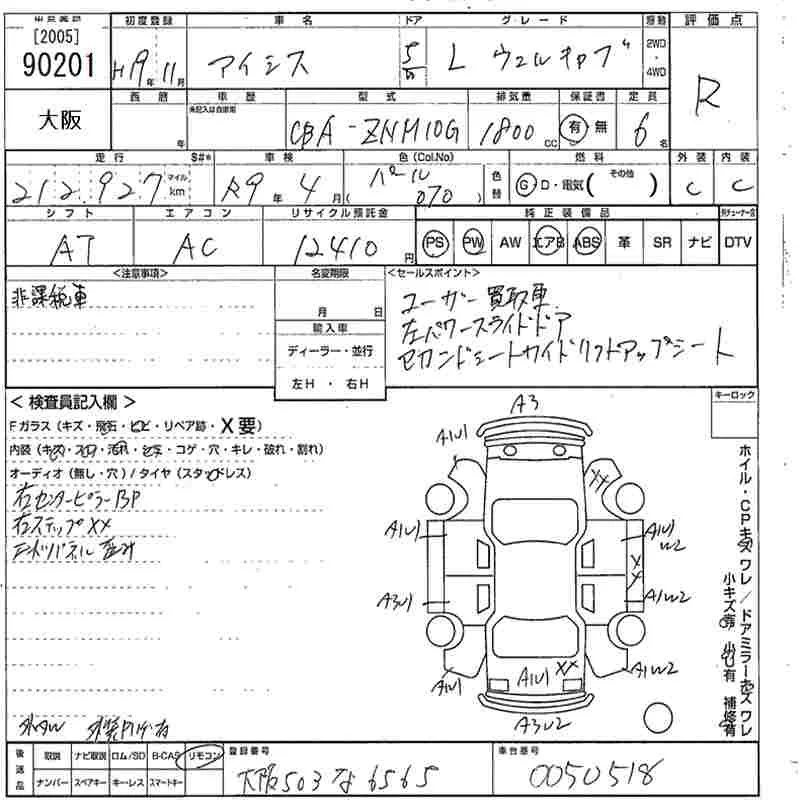 [2005]
90201
大阪
初度登録 車名 ドア グレード 駆動 評価点
H19年 11月 アイシス 5 L ウェルキャブ 2WD・4WD R
西暦 車歴 型式 排気量 保証書 定員
年 未記入は自家用 CBA-ZNM10G 1800cc 有 無 6名
走行 S#* 車検 色(Col.No) 燃料 外装 内装
212,927 マイル km R9年 4月 パール (070) 色替 G・D・電気( その他 ) C C
シフト エアコン リサイクル預託金 純正装備品
AT AC 12410円 PS PW AW エアB ABS 革 SR ナビ DTV
<注意事項> 名変期限 <セールスポイント>
非課税車 月 日
輸入車
ディーラー・並行
左H・右H
ユーザー買取車
左パワースライドドア
セカンドシートサイドリフトアップシート
<検査員記入欄>
Fガラス(キズ・飛石・ヒビ・リペア跡・X要)
内装(キズ・スレ・汚れ・シミ・コゲ・穴・キレ・破れ・割れ)
オーディオ(無し・穴)/タイヤ(スタッドレス)
右センターピラーBP
右ステップXX
エンドパネル歪み
キーロック
A3
A1U1 XX
A1U1 A1U1 W2
XX
A3U1 A1W2
A1U1 A1U1 XX A1W2
A3W2
ホイル・CPキズ ワレ/ドアミラーキズ ワレ
小キズ有 凹有 補修有
後送品 取説 ナビ取説 ロム/SD B-CAS リモコン 登録番号 車台番号
ナンバー スペアキー キーレス スマートキー 大阪503な6565 0050518